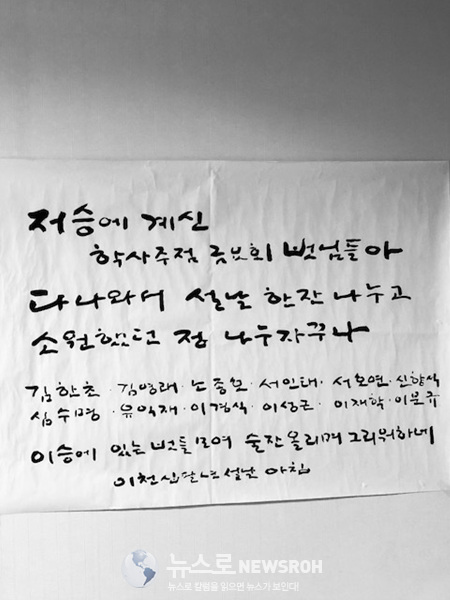 저승에 계신
학사주점 륮보회 벗님들아
다 나와서 설날 한잔 나누고
소원했던 정 나누자꾸나
김한초 · 김영래 · 노종호 · 서인태 · 서호연 · 신향식
심수명 · 유익재 · 이경식 · 이성근 · 이재학 · 이문규
이승에 있는 벗들 모여 술잔 올리며 그리워하네
이천십팔년 설날 아침
뉴스로 NEWSROH
뉴스로 칼럼을 읽으면 뉴스가 보인다!